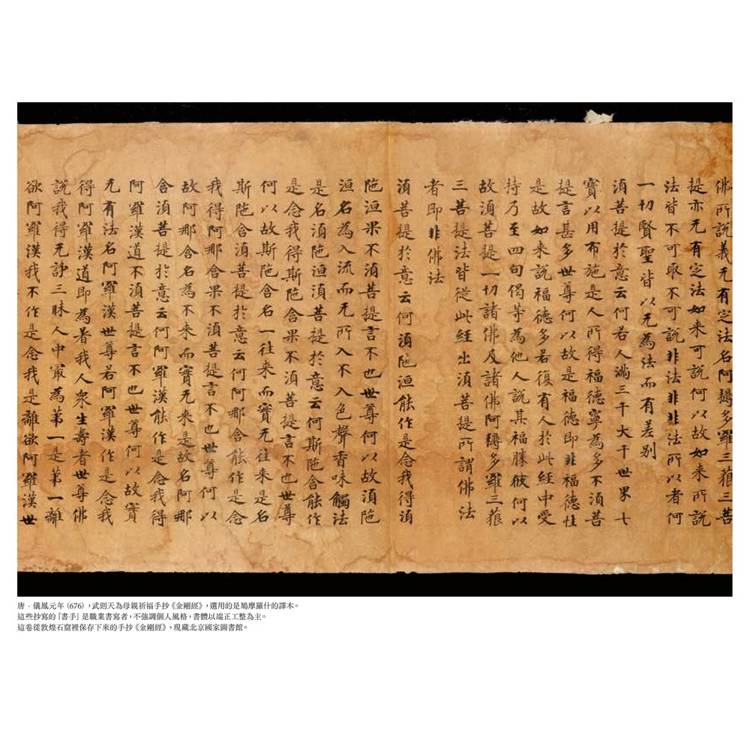 佛所說義无有定法名阿耨多羅三藐三菩
提亦无有定法如來可說何以故如來所說
法皆不可取不可說非法非非法所以者何
一切賢聖皆以无為法而有差別
湏菩提於意云何若人滿三千大千世界七
寶以用布施是人所得福德寧為多不湏菩
提言甚多世尊何以故是福德即非福德性
是故如來說福德多若復有人於此經中受
持乃至四句偈等為他人說其福勝彼何以
故湏菩提一切諸佛及諸佛阿耨多羅三藐
三菩提法皆從此經出湏菩提所謂佛法
者即非佛法
湏菩提於意云何湏陁洹能作是念我得湏
陁洹果不湏菩提言不也世尊何以故湏陁
洹名為入流而无所入不入色聲香味觸法
是名湏陁洹湏菩提於意云何斯陁含能作
是念我得斯陁含果不湏菩提言不也世尊
何以故斯陁含名一往來而實无往來是名
斯陁含湏菩提於意云何阿那含能作是念
我得阿那含果不湏菩提言不也世尊何以
故阿那含名為不來而實无來是故名阿那
含湏菩提於意云何阿羅漢能作是念我得
阿羅漢道不湏菩提言不也世尊何以故實
无有法名阿羅漢世尊若阿羅漢作是念我
得阿羅漢道即為著我人衆生壽者世尊佛
說我得无諍三昧人中冣為第一是第一離
欲阿羅漢我不作是念我是離欲阿羅漢世
唐．儀鳳元年（676），武則天為母親祈福手抄《金剛經》，選用的是鳩摩羅什的譯本。
這些抄寫的「書手」是職業書寫者，不強調個人風格，書體以端正工整為主。
這卷從敦煌石窟裡保存下來的手抄《金剛經》，現藏北京國家圖書館。